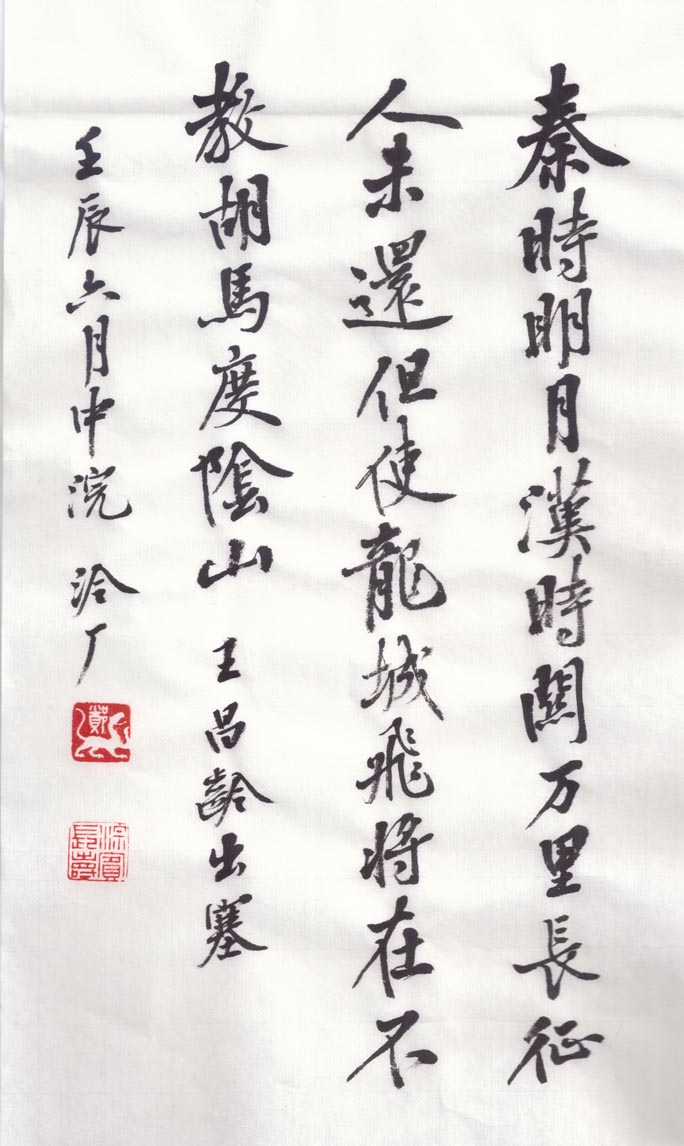 秦時明月漢時關万里長征
人未還但使龍城飛將在不
教胡馬度陰山 王昌齡出塞
壬辰六月中浣 泠厂